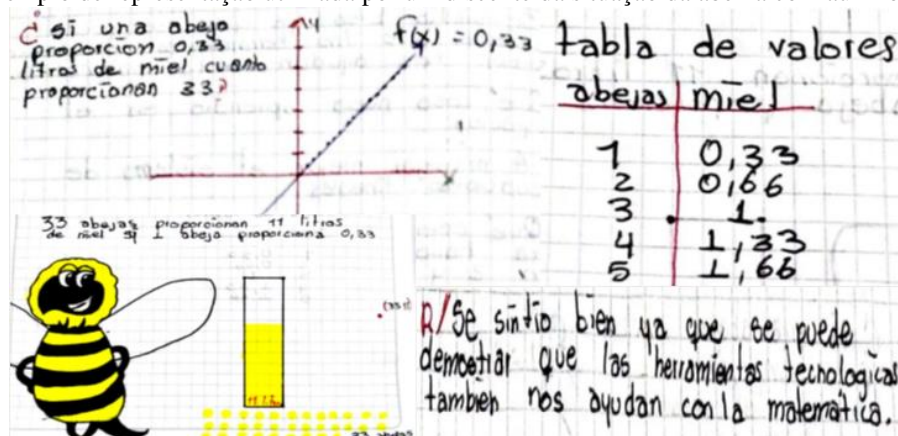 ¿ si una abeja
proporcion 0,33
litros de miel cuanto
proporcionan 33?
y
f(x) = 0,33
x
tabla de valores
abejas miel
1 0,33
2 0,66
3 1.
4 1,33
5 1,66
33 abejas proporcionan 11 litros
de miel si 1 abeja proporciona 0,33
33 abejas
R/ Se sintio bien ya que se puede
demostrar que las herramientas tecnologicas
tambien nos ayudan con la matematica.